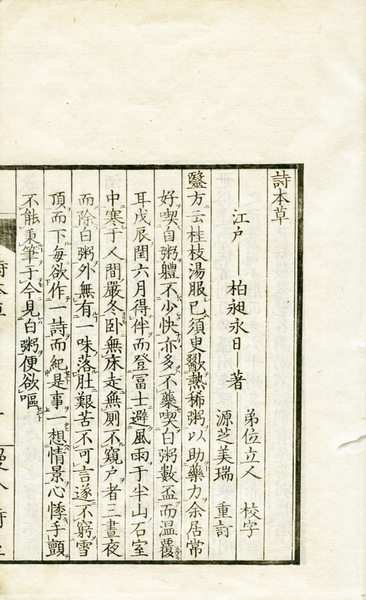 詩本草
江戶 柏昶永日 著
弟位立人 校字
源芝美瑞 重訂
毉方云桂枝湯服已須臾歠熱稀粥以助藥力余居常
好喫白粥軆不少快亦多不藥喫白粥數盃而溫覆
耳戊辰閏六月得伴而登冨士避風雨于半山石室
中寒于人間嚴冬卧無床走無厠不窺戶者三晝夜
而除白粥外無有一味落肚艱苦不可言遂不窮雪
頂而下每欲作一詩而紀是事一想情景心悸手顫
不能秉筆于今見白粥便欲嘔